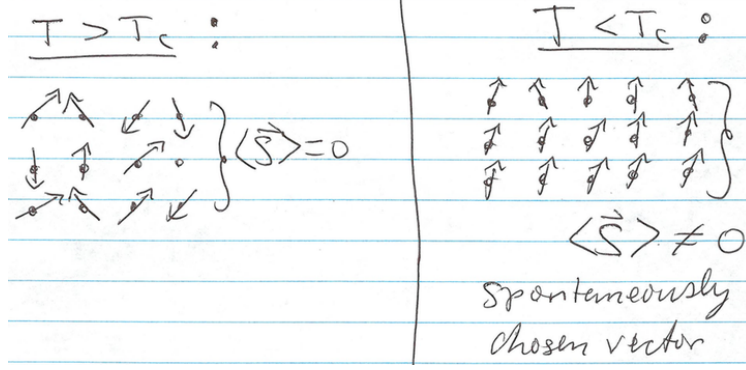 T > T_c :
⟨S⃗⟩ = 0
T < T_c :
⟨S⃗⟩ ≠ 0
spontaneously
chosen vector